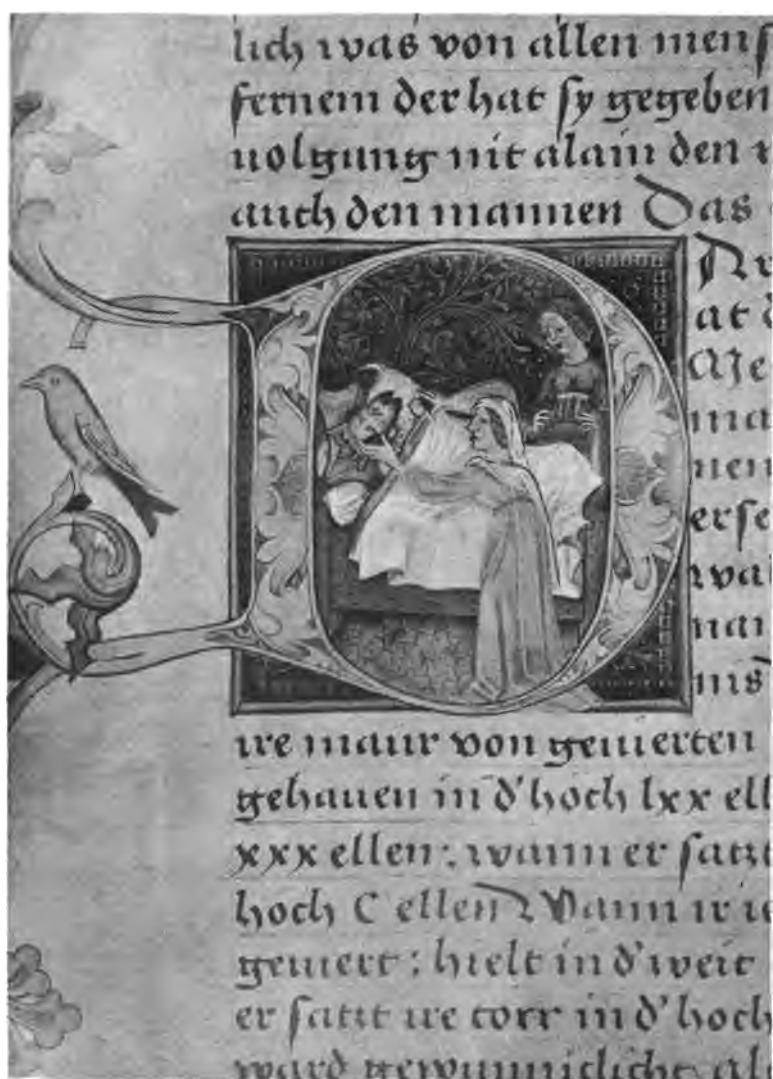 lich was von allen mens
fernem der hat sy gegeben
uolgung nit alain den
auch den mannen Das
D Ar
at d
Me
ma
nen
erse
wal
nai
nis
ire maur von geuierten
gehauen in d' hoch lxx ell
xxx ellen: wann er satzt
hoch C ellen Wann ir
geuiert: hielt in d' weit
er satzt ire torr in d' hoch
ward gewunniclicht als